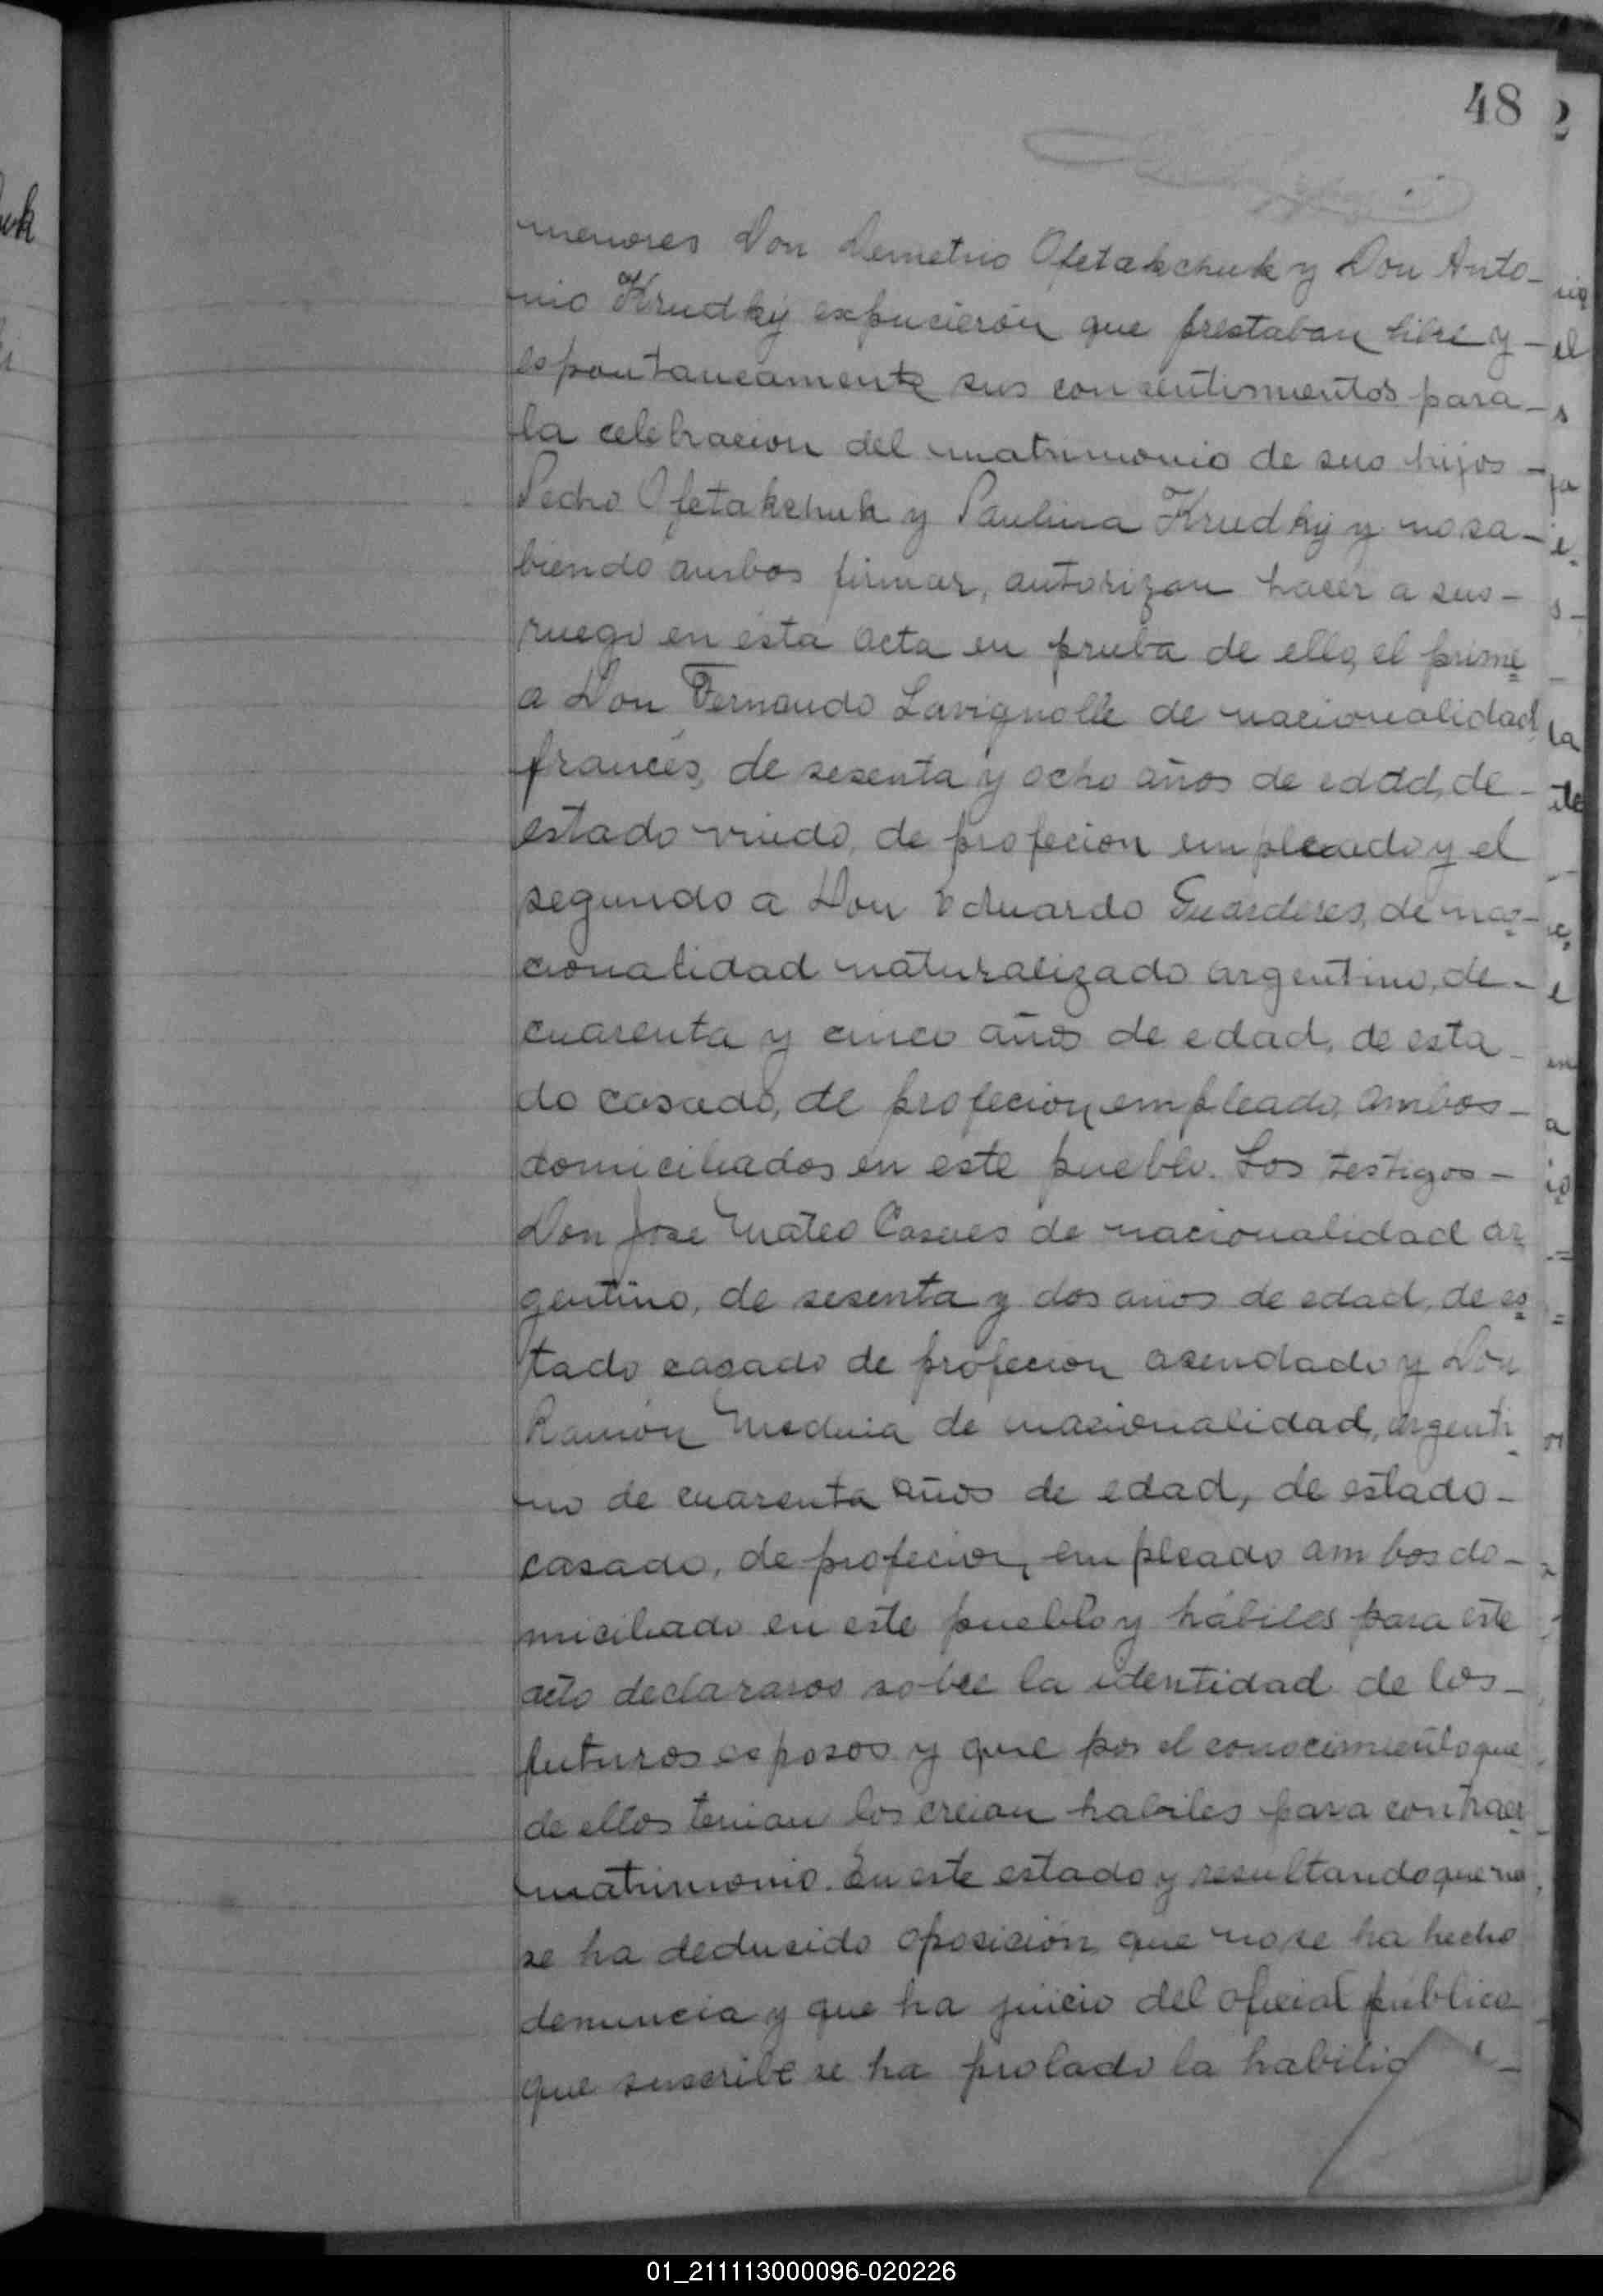 48
menores Don Demetrio Ofetakchuk y Don Anto-
nio Krudky expucierón que prestaban libre y -
espontaneamente sus consentismientos para -
la celebracion del matrimonio de sus hijos -
Pedro Ofetakchuk y Paulina Krudky y no sa-
biendo ambos firmar, autorizan hacer a sus -
ruego en ésta acta en pruba de ello, el prime
a Don Fernando Lavignolle de nacionalidad
francés, de sesenta y ocho años de edad, de -
estado viudo, de profecion empleado y el
segundo a Don Eduardo Guarderes, de na-
cionalidad naturalizado argentino, de -
cuarenta y cinco años de edad, de esta -
do casado, de profecion empleado, ambos -
domiciliados en este pueblo. Los testigos -
Don Jose Mateo Casaes de nacionalidad ar
gentino, de sesenta y dos años de edad, de es
tado casado de profecion asendado y Don
Ramón de nacionalidad, argenti
no de cuarenta años de edad, de estado -
casado, de profecion, empleado ambos do -
miciliado en este pueblo y hábiles para este
acto declararos sobre la identidad de los -
futuros esposos y que por el conocimiento que
de ellos tenian los creian habiles para contraer
matrimonio. En este estado y resultando que no
se ha deducido oposición, que no se ha hecho
denuncia y que ha juicio del oficial público
que suscribe se ha prolado la habilid
01_211113000096-020226